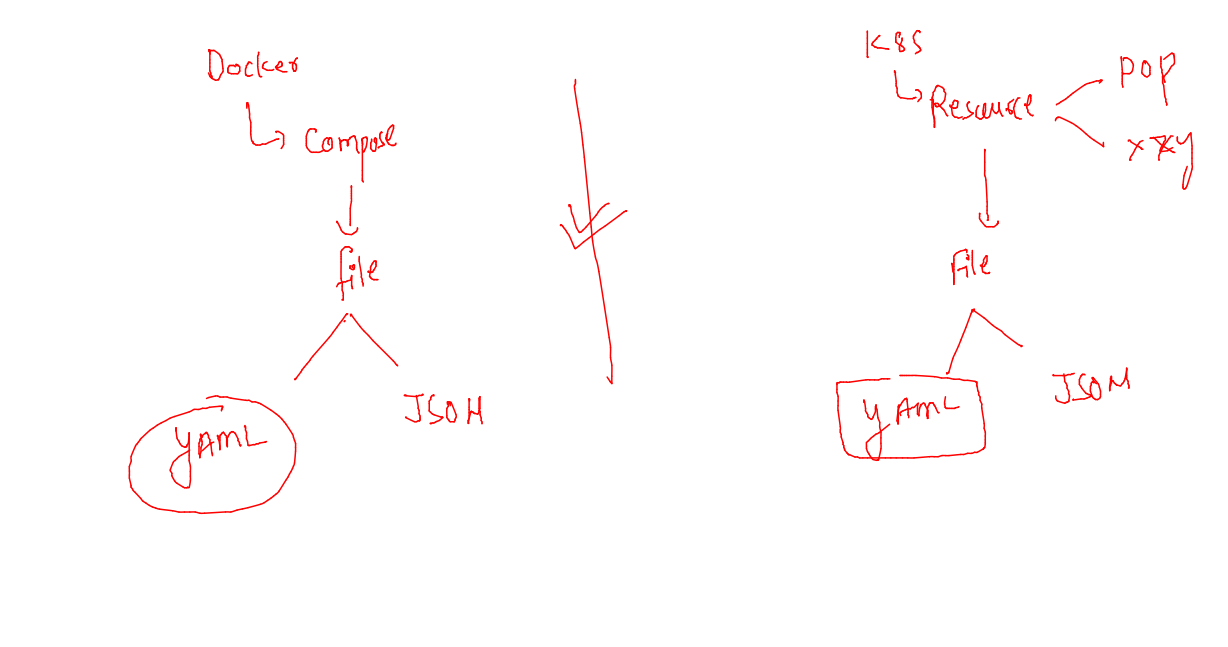 Docker
Compose
file
YAML
JSON
K8S
Resource
POP
xxy
File
YAML
JSON